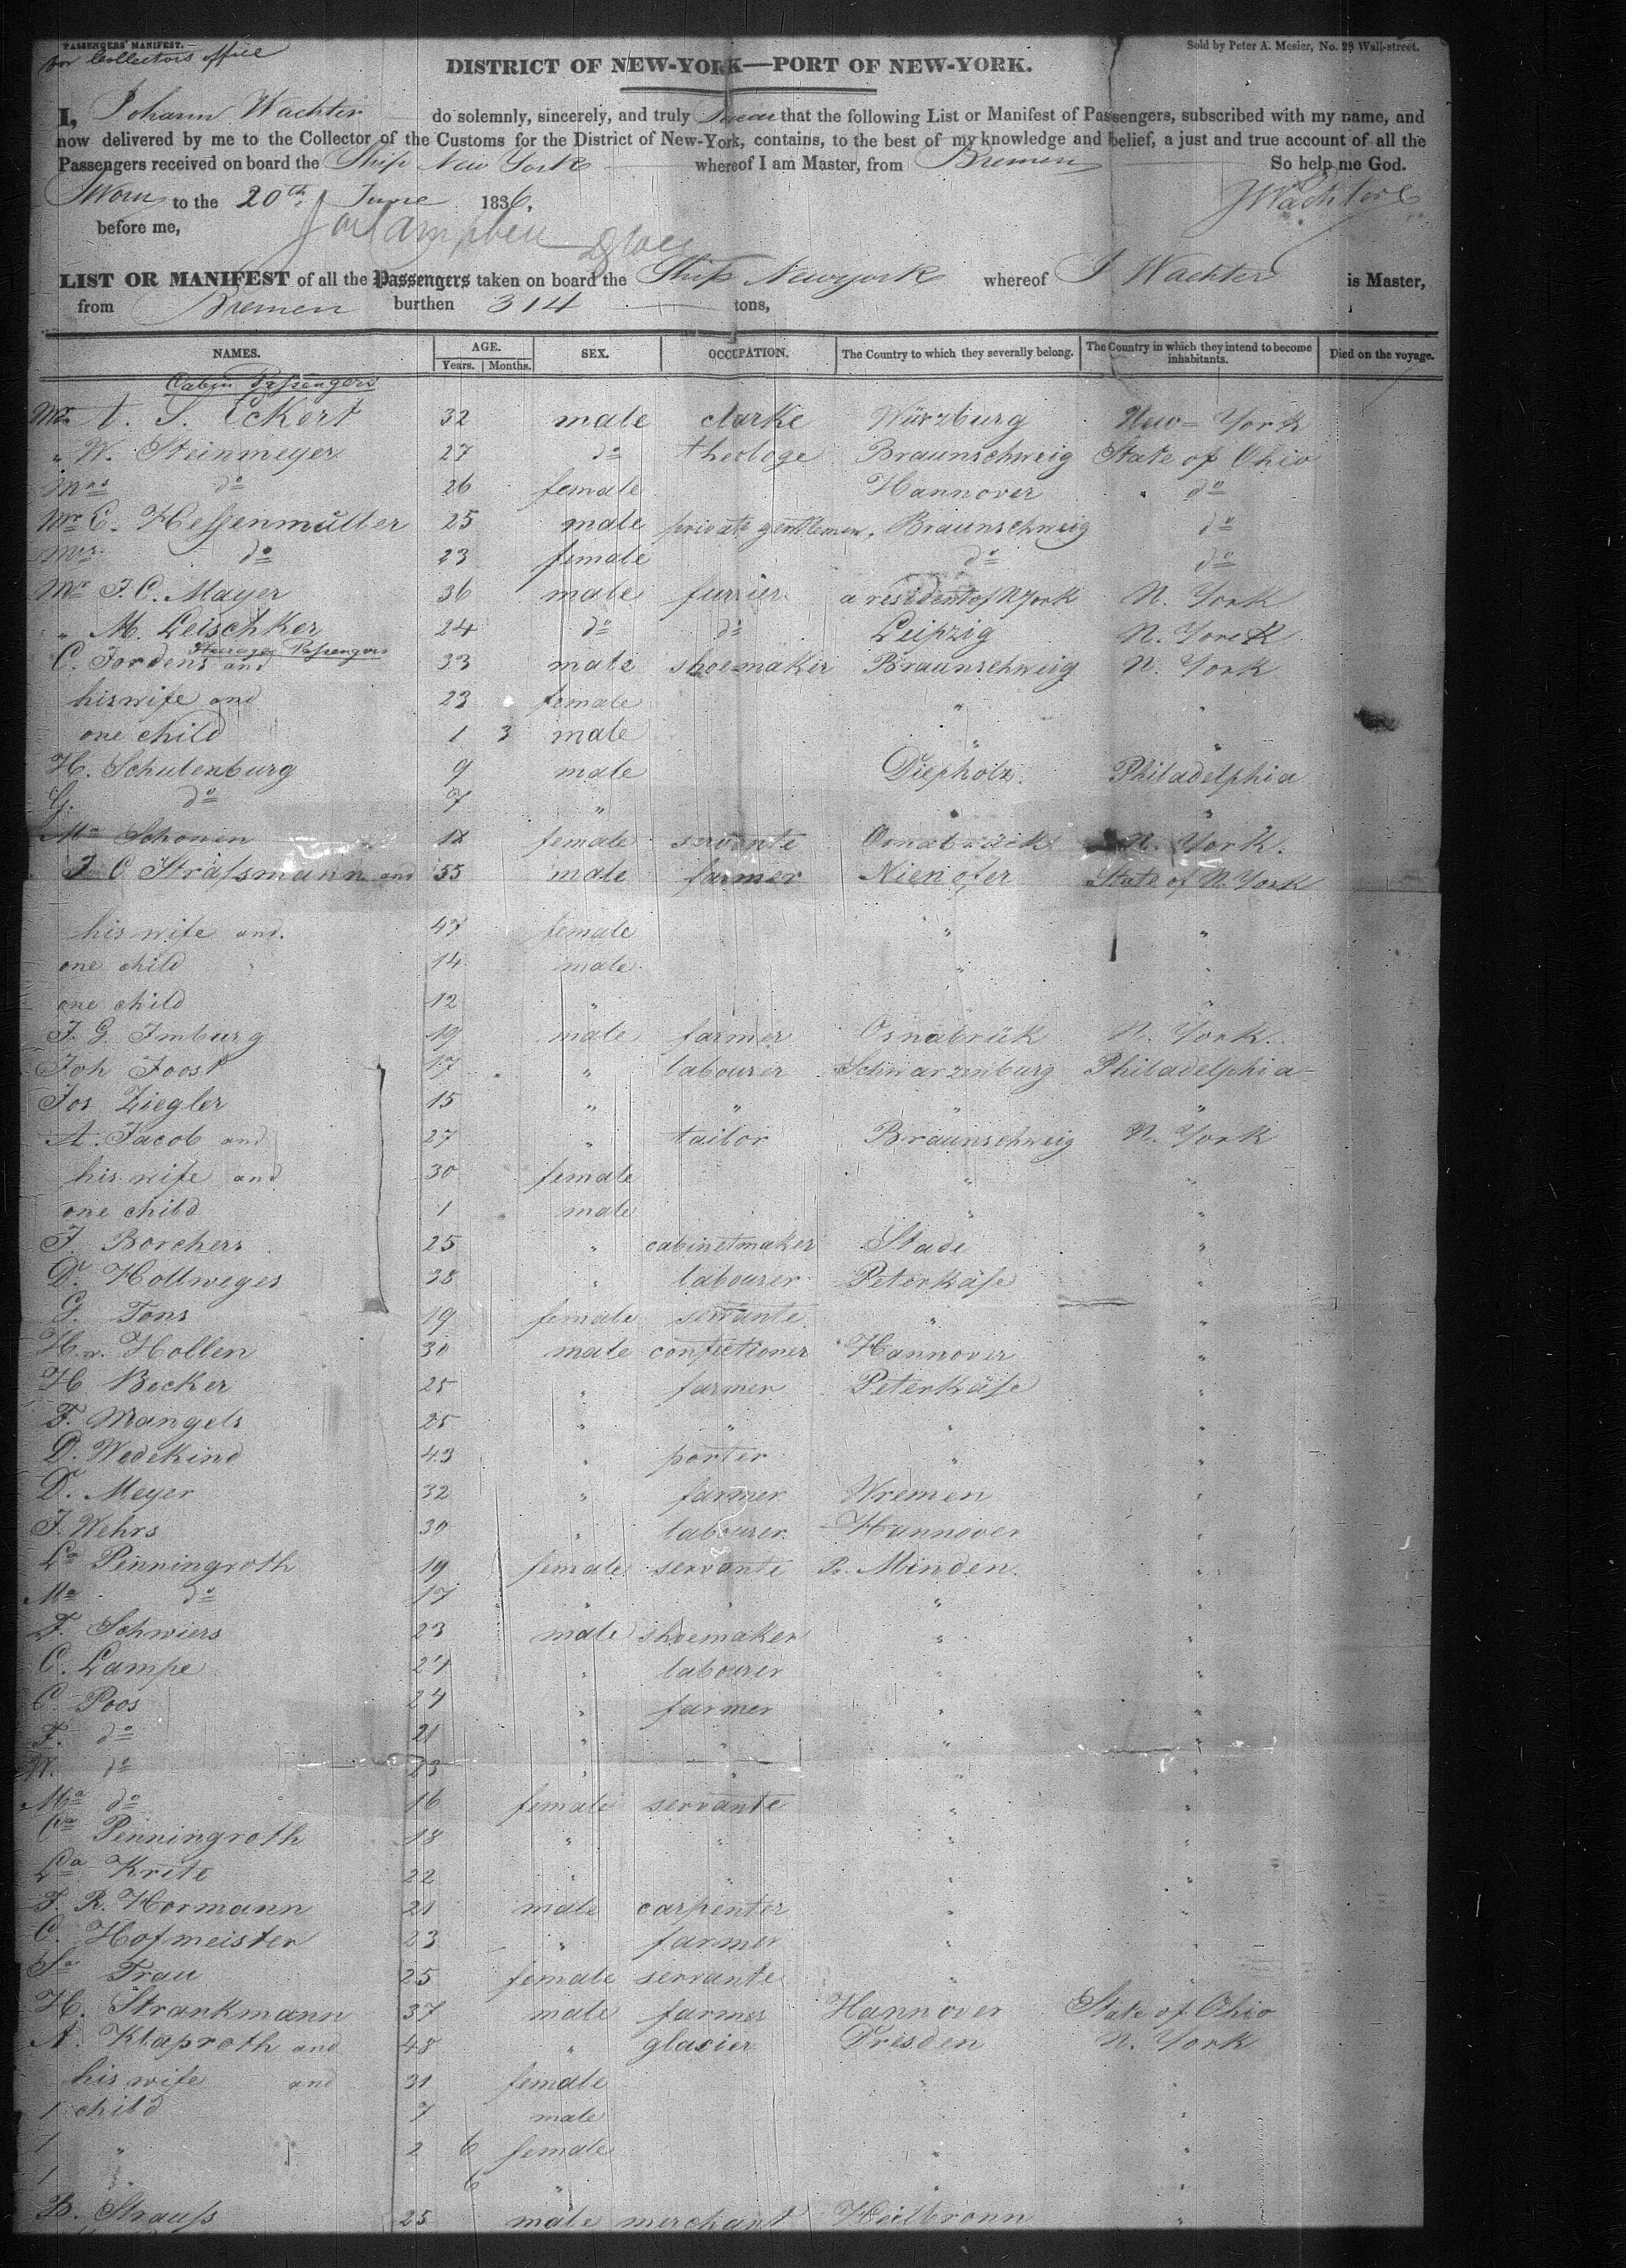 PASSENGERS' MANIFEST.
for Collectors office
Sold by Peter A. Mesier, No. 28 Wall-street.
DISTRICT OF NEW-YORK—PORT OF NEW-YORK.
I, Johann Wachter do solemnly, sincerely, and truly swear that the following List or Manifest of Passengers, subscribed with my name, and
now delivered by me to the Collector of the Customs for the District of New-York, contains, to the best of my knowledge and belief, a just and true account of all the
Passengers received on board the Ship New York whereof I am Master, from Bremen So help me God.
Sworn to the 20th June 1836.
before me,
LIST OR MANIFEST of all the Passengers taken on board the Ship Newyork whereof J Wachter is Master,
from Bremen burthen 314 tons,
NAMES. AGE. Years. Months. SEX. OCCUPATION. The Country to which they severally belong. The Country in which they intend to become inhabitants. Died on the voyage.
Cabin Passengers
Mr A. S. Eckert 32 male clarke Würzburg New-York
" W. Steinmeyer 27 do theologe Braunschweig State of Ohio
Mrs do 26 female Hannover " do
Mr C. Hessenmüller 25 male private gentlemen. Braunschweig do
Mrs do 23 female do do
Mr J. C. Mayer 36 male furrier a resident of N York N. York
" M. Leischker 24 do do Leipzig N. York
Steerage Passengers
C. Jordens and 33 male shoemaker Braunschweig N. York
his wife and 23 female " "
one child 1 3 male " "
H. Schulenburg 9 male Diepholz Philadelphia
G. do 7 " " "
Ma Schonen 18 female servante Osnabrück N. York.
J C Strassmann and 55 male farmer Nienofer State of N. York
his wife and 47 female " "
one child 14 male " "
one child 12 " " "
J. G. Imburg 19 male farmer Osnabrük N. York
Joh Joost 17 " labourer Schwarzenburg Philadelphia
Jos Ziegler 15 " " " "
A. Jacob and 27 " tailor Braunschweig N. York
his wife and 30 female " "
one child 1 male " "
J. Borchers 25 " cabinetmaker Stade "
D. Hollweges 38 " labourer Peterkäse "
G. Tons 19 female servante " "
H. v. Hollen 30 male confectioner Hannover "
H Becker 25 " farmer Peterkäse "
F. Mangels 25 " " " "
D. Wedekind 43 " porter " "
D. Meyer 32 " farmer Wremen "
J. Wehrs 30 " labourer Hannover "
La Penningroth 19 female servante Pr. Minden "
Ma do 17 " " " "
F. Schwiers 23 male shoemaker " "
C. Lampe 24 " labourer " "
C. Poos 24 " farmer " "
F. do 21 " " " "
W. do 23 " " " "
Ma do 16 female servante " "
Ca Penningroth 18 " " " "
Lda Krite 22 " " " "
F. R. Hormann 21 male carpenter " "
C. Hofmeister 23 " farmer " "
Sa Trau 25 female servante " "
H. Strankmann 37 male farmer Hannover State of Ohio
A. Klaproth and 48 " glacier Dresden N. York
his wife and 31 female " "
1 child 7 male "
1 " 2 6 female " "
1 " 6 " " "
B. Strauss 25 male merchant Heilbronn "